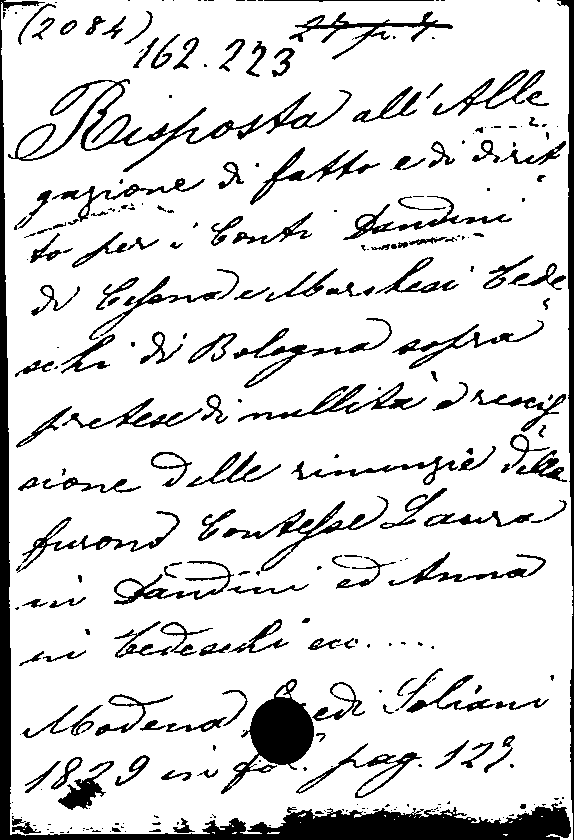 (2084) 27 p. 7.
162.223
Risposta all' Alle
gazione di fatto e di dirit
to per i Conti Dandini
di Cesena e Marchesi Tede
schi di Bologna sopra
pretese di nullità e rescis
sione delle rinunzie delle
furono Contesse Laura
in Dandini ed Anna
in Tedeschi ecc.....
Modena Eredi Soliani
1829 in fo. pag. 127.